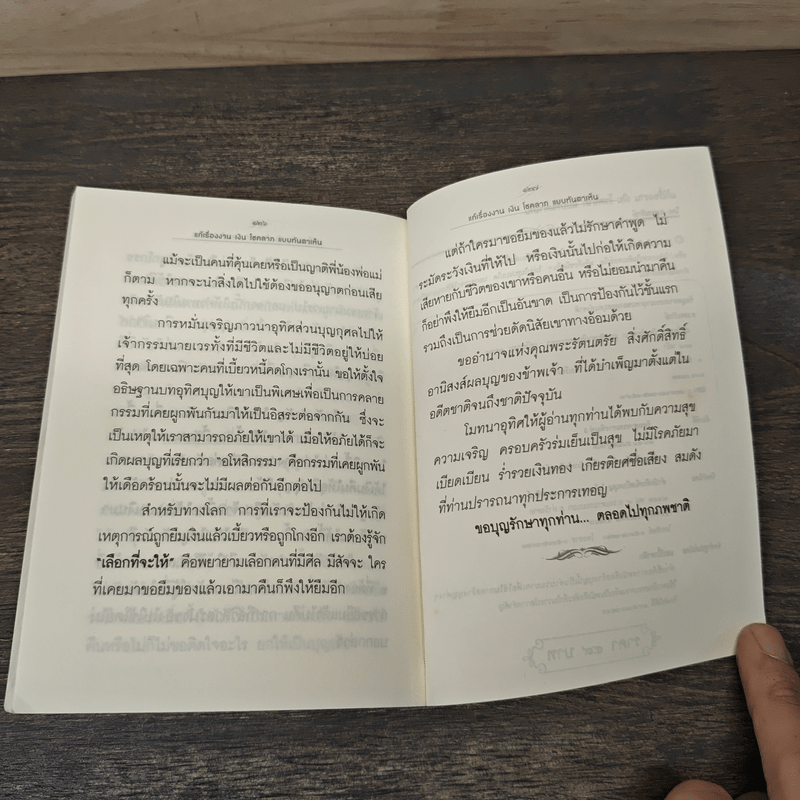 ๑๒๖
แก้เรื่องงาน เงิน โชคลาภ แบบทันตาเห็น
แม้จะเป็นคนที่คุ้นเคยหรือเป็นญาติพี่น้องพ่อแม่
ก็ตาม หากจะนำสิ่งใดไปใช้ต้องขออนุญาตก่อนเสีย
ทุกครั้ง
การหมั่นเจริญภาวนาอุทิศส่วนบุญกุศลไปให้
เจ้ากรรมนายเวรทั้งที่มีชีวิตและไม่มีชีวิตอยู่ให้บ่อย
ที่สุด โดยเฉพาะคนที่เบี้ยวหนี้คดโกงเรานั้น ขอให้ตั้งใจ
อธิษฐานบทอุทิศบุญให้เขาเป็นพิเศษเพื่อเป็นการคลาย
กรรมที่เคยผูกพันกันมาให้เป็นอิสระต่อจากกัน ซึ่งจะ
เป็นเหตุให้เราสามารถอภัยให้เขาได้ เมื่อให้อภัยได้ก็จะ
เกิดผลบุญที่เรียกว่า "อโหสิกรรม" คือกรรมที่เคยผูกพัน
ให้เดือดร้อนนั้นจะไม่มีผลต่อกันอีกต่อไป
สำหรับทางโลก การที่เราจะป้องกันไม่ให้เกิด
เหตุการณ์ถูกยืมเงินแล้วเบี้ยวหรือถูกโกงอีก เราต้องรู้จัก
"เลือกที่จะให้" คือพยายามเลือกคนที่มีศีล มีสัจจะ ใคร
ที่เคยมาขอยืมของแล้วเอามาคืนก็พึงให้ยืมอีก
๑๒๗
แก้เรื่องงาน เงิน โชคลาภ แบบทันตาเห็น
แต่ถ้าใครมาขอยืมของแล้วไม่รักษาคำพูด ไม่
ระมัดระวังเงินที่ให้ไป หรือเงินนั้นไปก่อให้เกิดความ
เสียหายกับชีวิตของเขาหรือคนอื่น หรือไม่ยอมนำมาคืน
ก็อย่าพึงให้ยืมอีกเป็นอันขาด เป็นการป้องกันไว้ชั้นแรก
รวมถึงเป็นการช่วยดัดนิสัยเขาทางอ้อมด้วย
ขออำนาจแห่งคุณพระรัตนตรัย สิ่งศักดิ์สิทธิ์
อานิสงส์ผลบุญของข้าพเจ้า ที่ได้บำเพ็ญมาตั้งแต่ใน
อดีตชาติจนถึงชาติปัจจุบัน
โมทนาอุทิศให้ผู้อ่านทุกท่านได้พบกับความสุข
ความเจริญ ครอบครัวร่มเย็นเป็นสุข ไม่มีโรคภัยมา
เบียดเบียน ร่ำรวยเงินทอง เกียรติยศชื่อเสียง สมดัง
ที่ท่านปรารถนาทุกประการเทอญ
ขอบุญรักษาทุกท่าน... ตลอดไปทุกภพชาติ